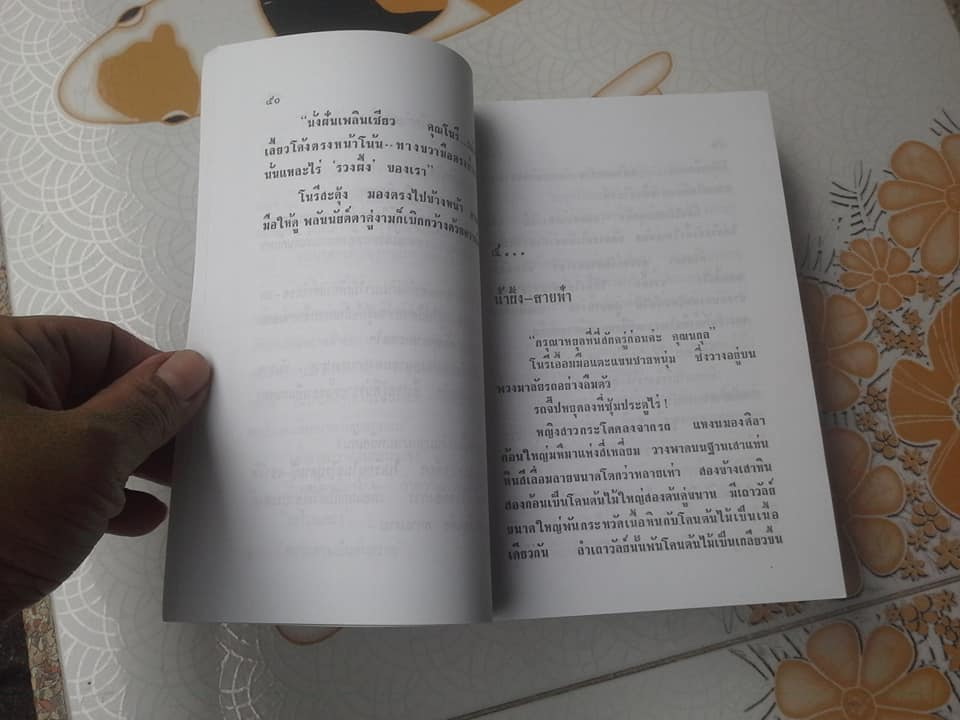 ๕๐
“นั่งฝันเพลินเชียว คุณโนรี...
เลี้ยวโค้งตรงหน้าโน้น--ทางขวามือตรง
นั้นแหละไร่ ‘รวงผึ้ง’ ของเรา”
โนรีสะดุ้ง มองตรงไปข้างหน้า
มือให้ดู พลันนัยต์ตาคู่งามก็เบิกกว้างด้วย
๕...
น้ำผึ้ง-สายฟ้า
“กรุณาหยุดที่นี่สักครู่ก่อนค่ะ คุณนกุล”
โนรีเอื้อมมือแตะแขนชายหนุ่ม ซึ่งวางอยู่บน
พวงมาลัยรถอย่างลืมตัว
รถจี๊ปหยุดลงที่ซุ้มประตูไร่!
หญิงสาวกระโดดลงจากรถ แหงนมองศิลา
ก้อนใหญ่มหึมาแท่งสี่เหลี่ยม วางพาดบนฐานเสาแท่น
หินสีเลื่อมลายขนาดโตกว่าหลายเท่า สองข้างเสาหิน
สองก้อนเป็นโคนต้นไม้ใหญ่สองต้นคู่ขนาน มีเถาวัลย์
ขนาดใหญ่พันกระหวัดเนื้อหินกับโคนต้นไม้เป็นเนื้อ
เดียวกัน ลำเถาวัลย์นั้นพันโคนต้นไม้เป็นเกลียวขึ้น